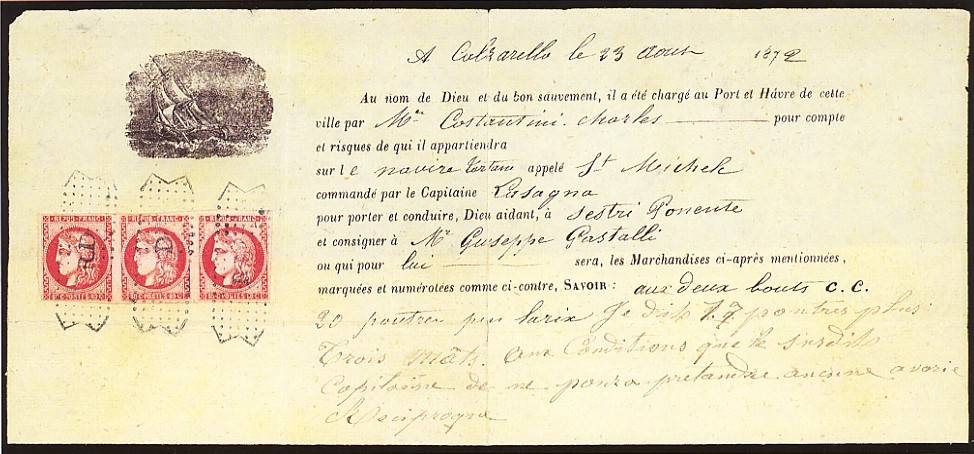 A Colzarello le 23 aoust 1872
Au nom de Dieu et du bon sauvement, il a été chargé au Port et Hâvre de cette
ville par Mr Costantini Charles pour compte
et risques de qui il appartiendra
sur le navire tartane appelé St Michel
commandé par le Capitaine Lasagna
pour porter et conduire, Dieu aidant, à Sestri Ponente
et consigner à Mr Guseppe Gastalli
ou qui pour lui sera, les Marchandises ci-après mentionnées,
marquées et numérotées comme ci-contre, SAVOIR : aux deux bouts C. C.
20 poutres pin larix Je dis 17 poutres plus
Trois mâts. aux Conditions que le susdit
Capitaine de ne poura pretandre aucune avarie
Reciproque
REPUB FRANC
REPUB FRANC
REPUB FRANC
POSTES
POSTES
POSTES